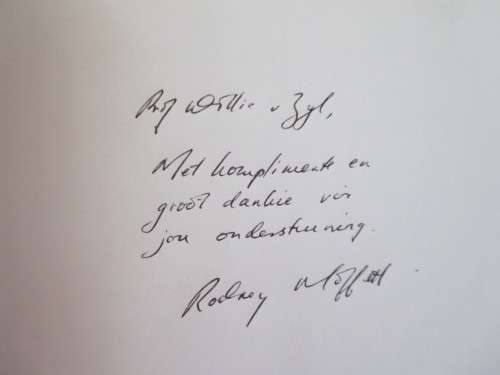 Prof Willie v Zyl,
Met komplimente en
groot dankie vir
jou ondersteuning.
Rodney Moffett